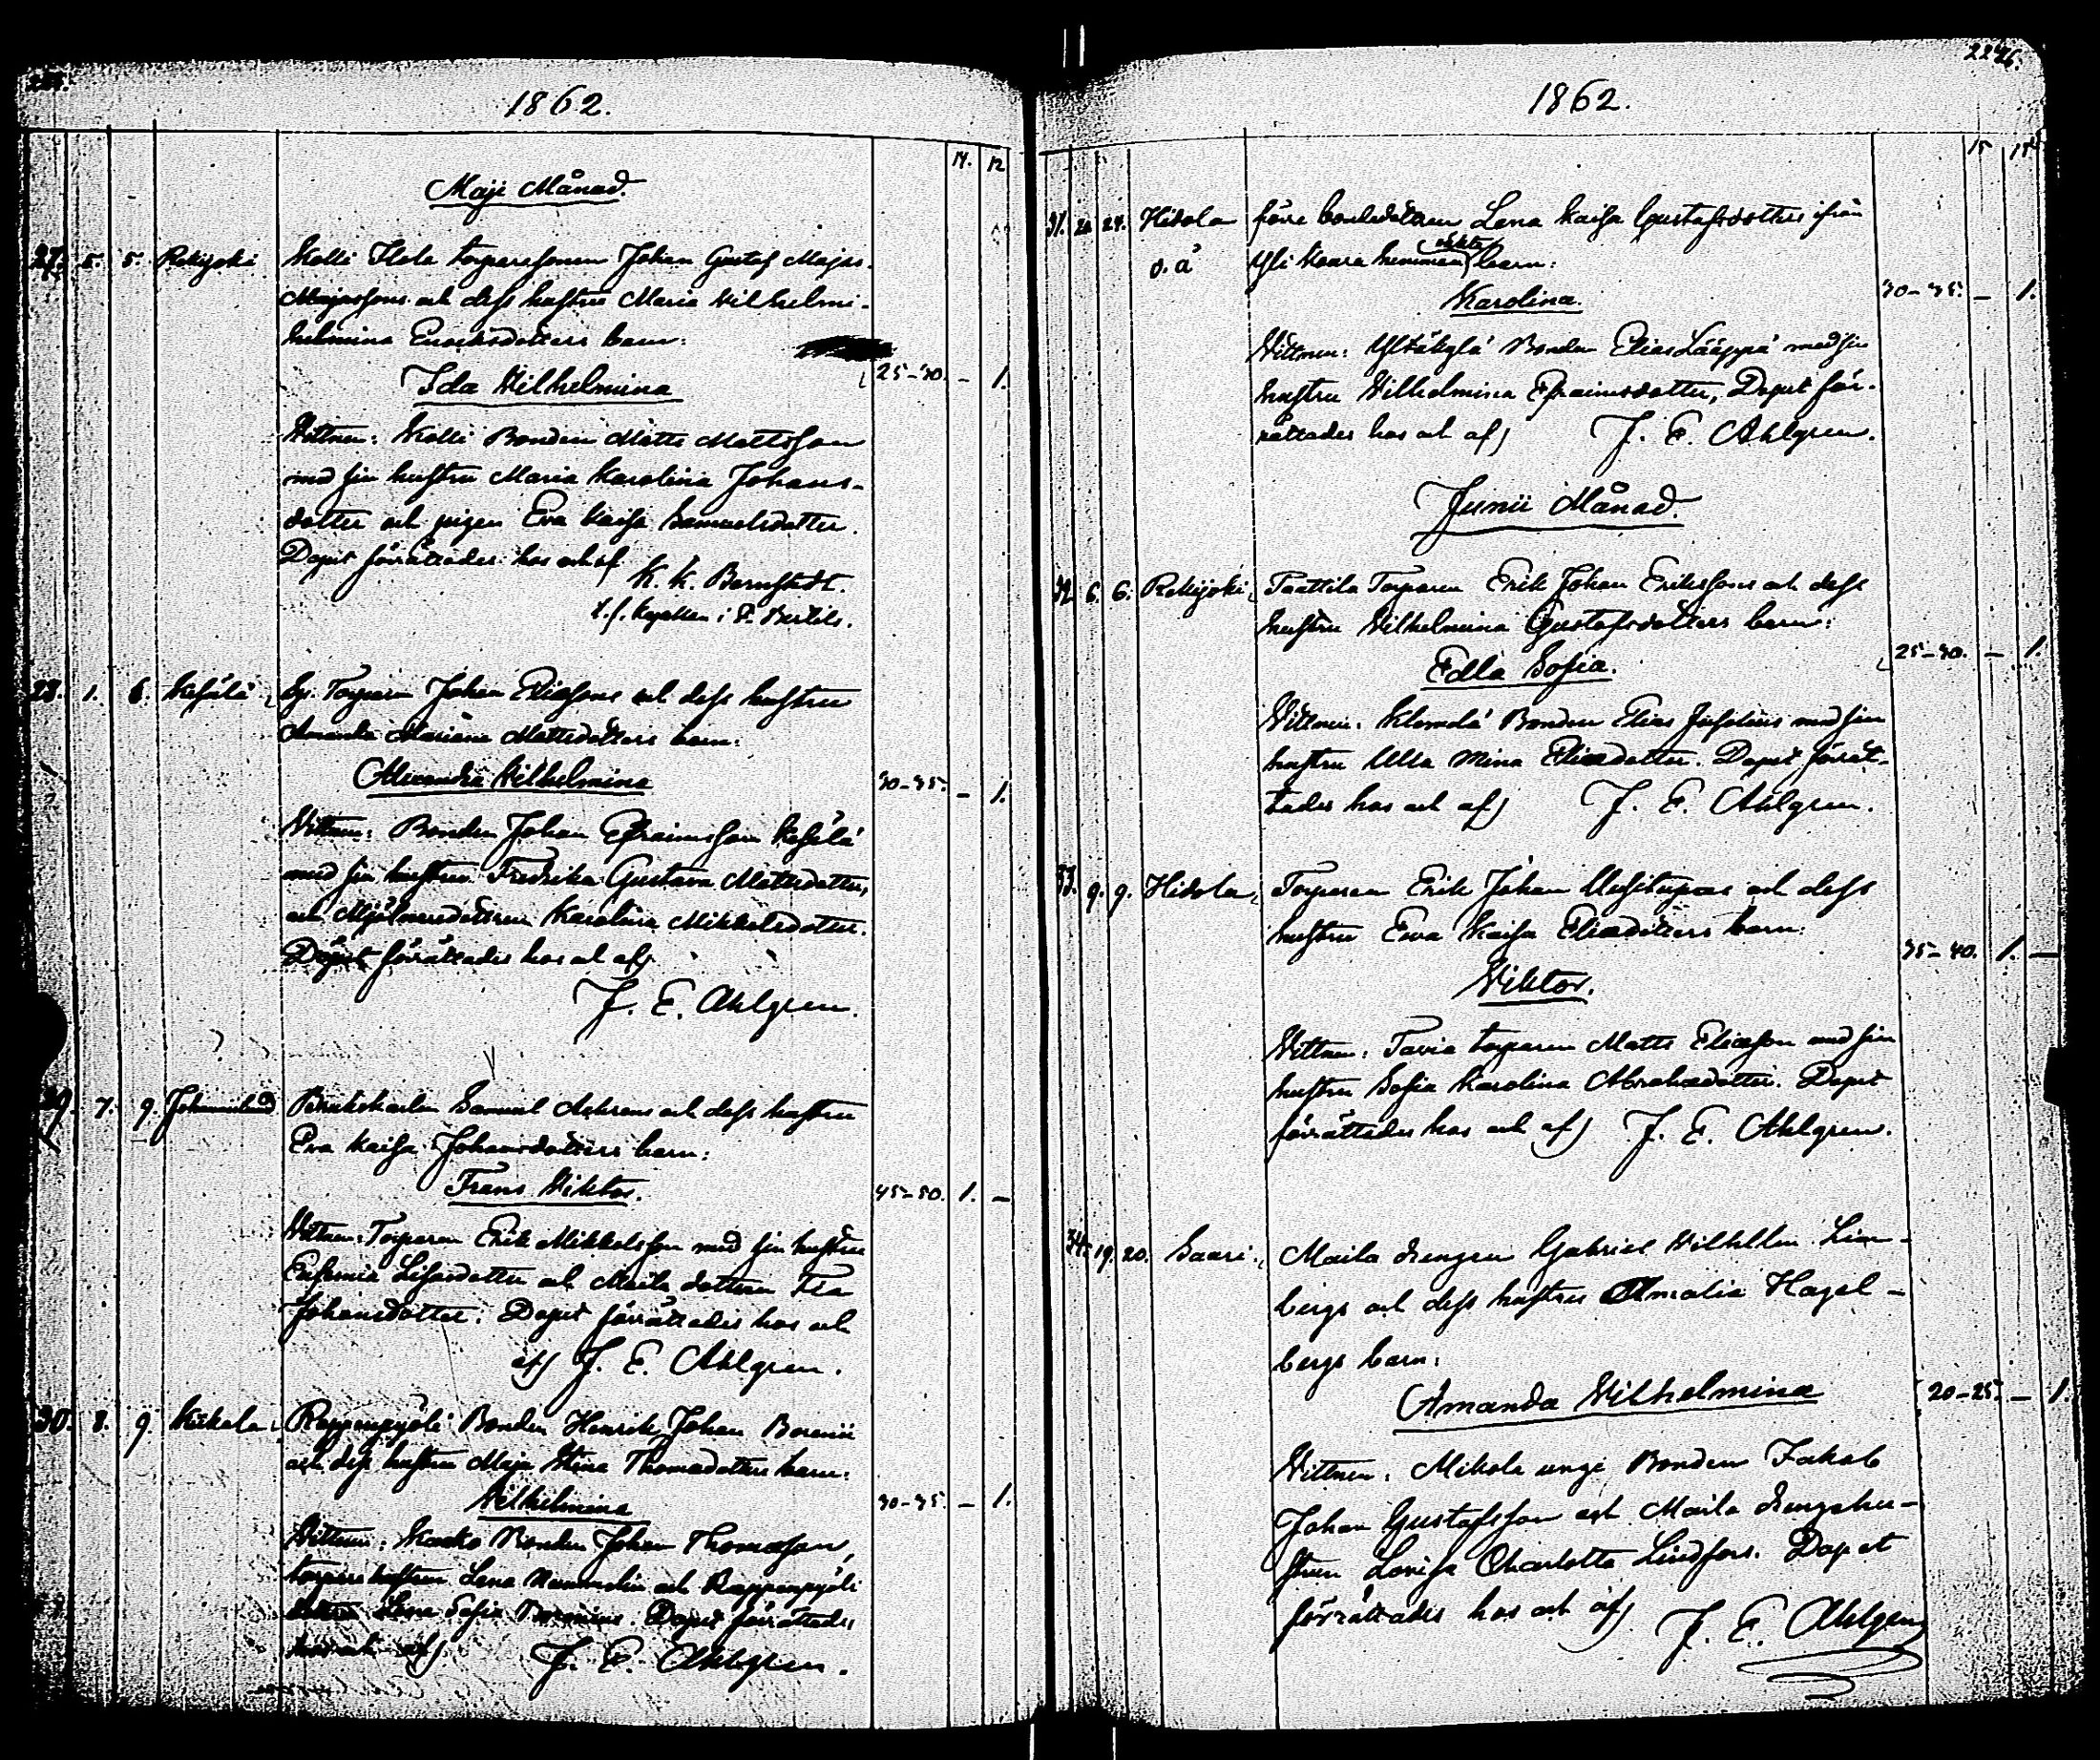 1862.
14. 12
Maji Månad.
27. 5. 5. Rekijoki Kolli Hola torparesonen Johan Gustaf Majas-
Majassons och dess hustru Maria Vilhelmi-
helmina Enoksdotters barn:
Ida Vilhelmina 25-30. - 1.
Vittnen: Kolli Bonden Matts Mattsson
med sin hustru Maria Karolina Johans-
dotter och pigan Eva Kaisa Samuelsdotter.
Dopet förrättades hos och af
K. K. Bernstedt.
t.f. Kapellan i St Bertils.
28. 1. 6. Kesälä Torparen Johan Eliassons och dess hustru
Amanda Mariana Mattsdotters barn:
Alexandra Vilhelmina 30-35. - 1.
Vittnen: Bonden Johan Efraimsson Kesälä
med sin hustru Fredrika Gustava Mattsdotter,
och Mjölnaredottren Karolina Mikkelsdotter.
Dopet förrättades hos och af
J. E. Ahlgren.
29. 7. 9. Johannislund Brukskarlen Samuel och dess hustru
Eva Kaisa Johansdotters barn:
Frans Viktor. 45-50. 1. -
Vittnen: Torparen Erik Mikkelsson med sin hustru
Eufemia dotter och Maila dottern
Johansdotter. Dopet förrättades hos och
af J. E. Ahlgren.
30. 8. 9. Kiikala Rappenpyöli Bonden Henrik Johan Borenii
och dess hustru Maja Stina Thomadotters barn:
Vilhelmina 30-35. - 1.
Vittnen: Bonden Johan Thomasson,
torpare hustrun Lena och Rappenpyöli
dottern Lena Sofia Borenius. Dopet förrättades
hos och af J. E. Ahlgren.
1862.
15
31. 24. Hidola förre bondedottren Lena Kaisa Gustafsdotters ifrån
o.ä Yli Kaura hemman oäkta barn:
Karolina. 30-35. - 1.
Vittnen: Yltäkylä Bonden Elias Lääppä med sin
hustru Vilhelmina Efraimsdotter, Dopet för-
rättades hos och af J. E. Ahlgren.
Junii Månad.
32 6. 6. Rekijoki Taattila Torparen Erik Johan Erikssons och dess
hustru Vilhelmina Gustafsdotters barn:
Edla Sofia. 25-30. - 1.
Vittnen: Bonden Elias Juselius med sin
hustru Ulla Mina Eliedotter. Dopet förrät-
tades hos och af J. E. Ahlgren.
33. 9. 9. Hidola Torparen Erik Johan Uusitupas och dess
hustru Ewa Kaisa Eliedotters barn:
35-40. 1. -
Viktor.
Vittnen: Tavia torparen Matts Eliasson med sin
hustru Sofia Karolina Abrahadotter. Dopet
förrättades hos och af J. E. Ahlgren.
34. 19. 20. Saari Maila drengen Gabriel Vilhelm Lim-
bergs och dess hustru Amalia Hagel-
bergs barn:
Amanda Vilhelmina 20-25. - 1.
Vittnen: Mikola unge Bonden Jakob
Johan Gustafsson och Maila drengshu-
strun Lovisa Charlotta Lindfors. Dopet
förrättades hos och af J. E. Ahlgren